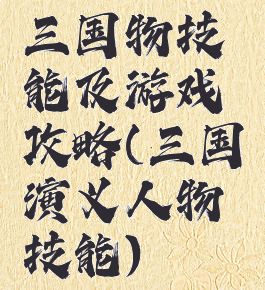 三国物技
能及游戏
攻略(三国
演义人物
技能)